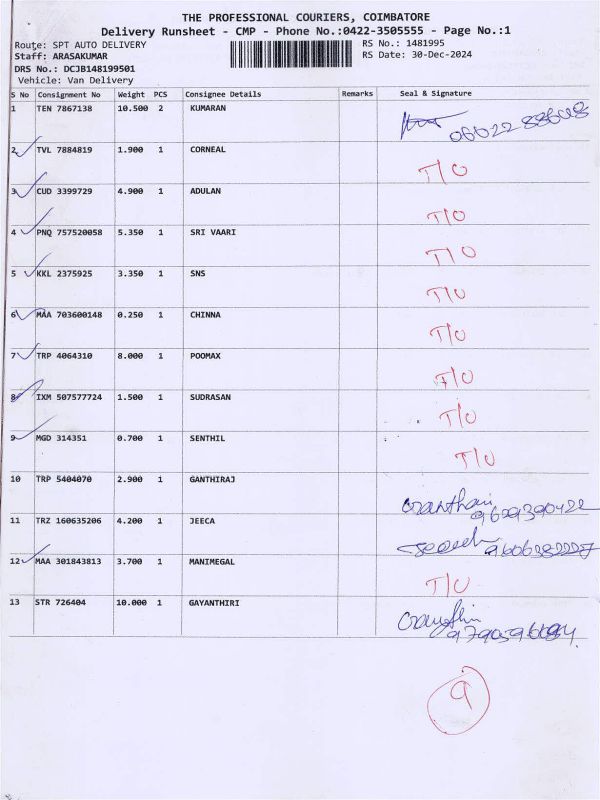 THE PROFESSIONAL COURIERS, COIMBATORE
Delivery Runsheet - CMP - Phone No.:0422-3505555 - Page No.:1
Route: SPT AUTO DELIVERY RS No.: 1481995
Staff: ARASAKUMAR RS Date: 30-Dec-2024
DRS No.: DCJB148199501
Vehicle: Van Delivery
S No Consignment No Weight PCS Consignee Details Remarks Seal & Signature
1 TEN 7867138 10.500 2 KUMARAN
2 TVL 7884819 1.900 1 CORNEAL T/O
3 CUD 3399729 4.900 1 ADULAN T/O
4 PNQ 757520058 5.350 1 SRI VAARI T/O
5 KKL 2375925 3.350 1 SNS T/O
6 MAA 703600148 0.250 1 CHINNA T/O
7 TRP 4064310 8.000 1 POOMAX T/O
8 IXM 507577724 1.500 1 SUDRASAN T/O
9 MGD 314351 0.700 1 SENTHIL T/O
10 TRP 5404070 2.900 1 GANTHIRAJ
11 TRZ 160635206 4.200 1 JEECA
12 MAA 301843813 3.700 1 MANIMEGAL T/O
13 STR 726404 10.000 1 GAYANTHIRI
9